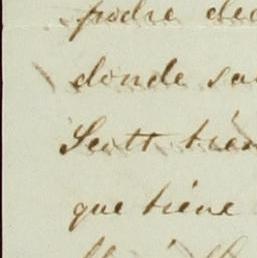 podre dec
donde sa
Scott tien
que tiene